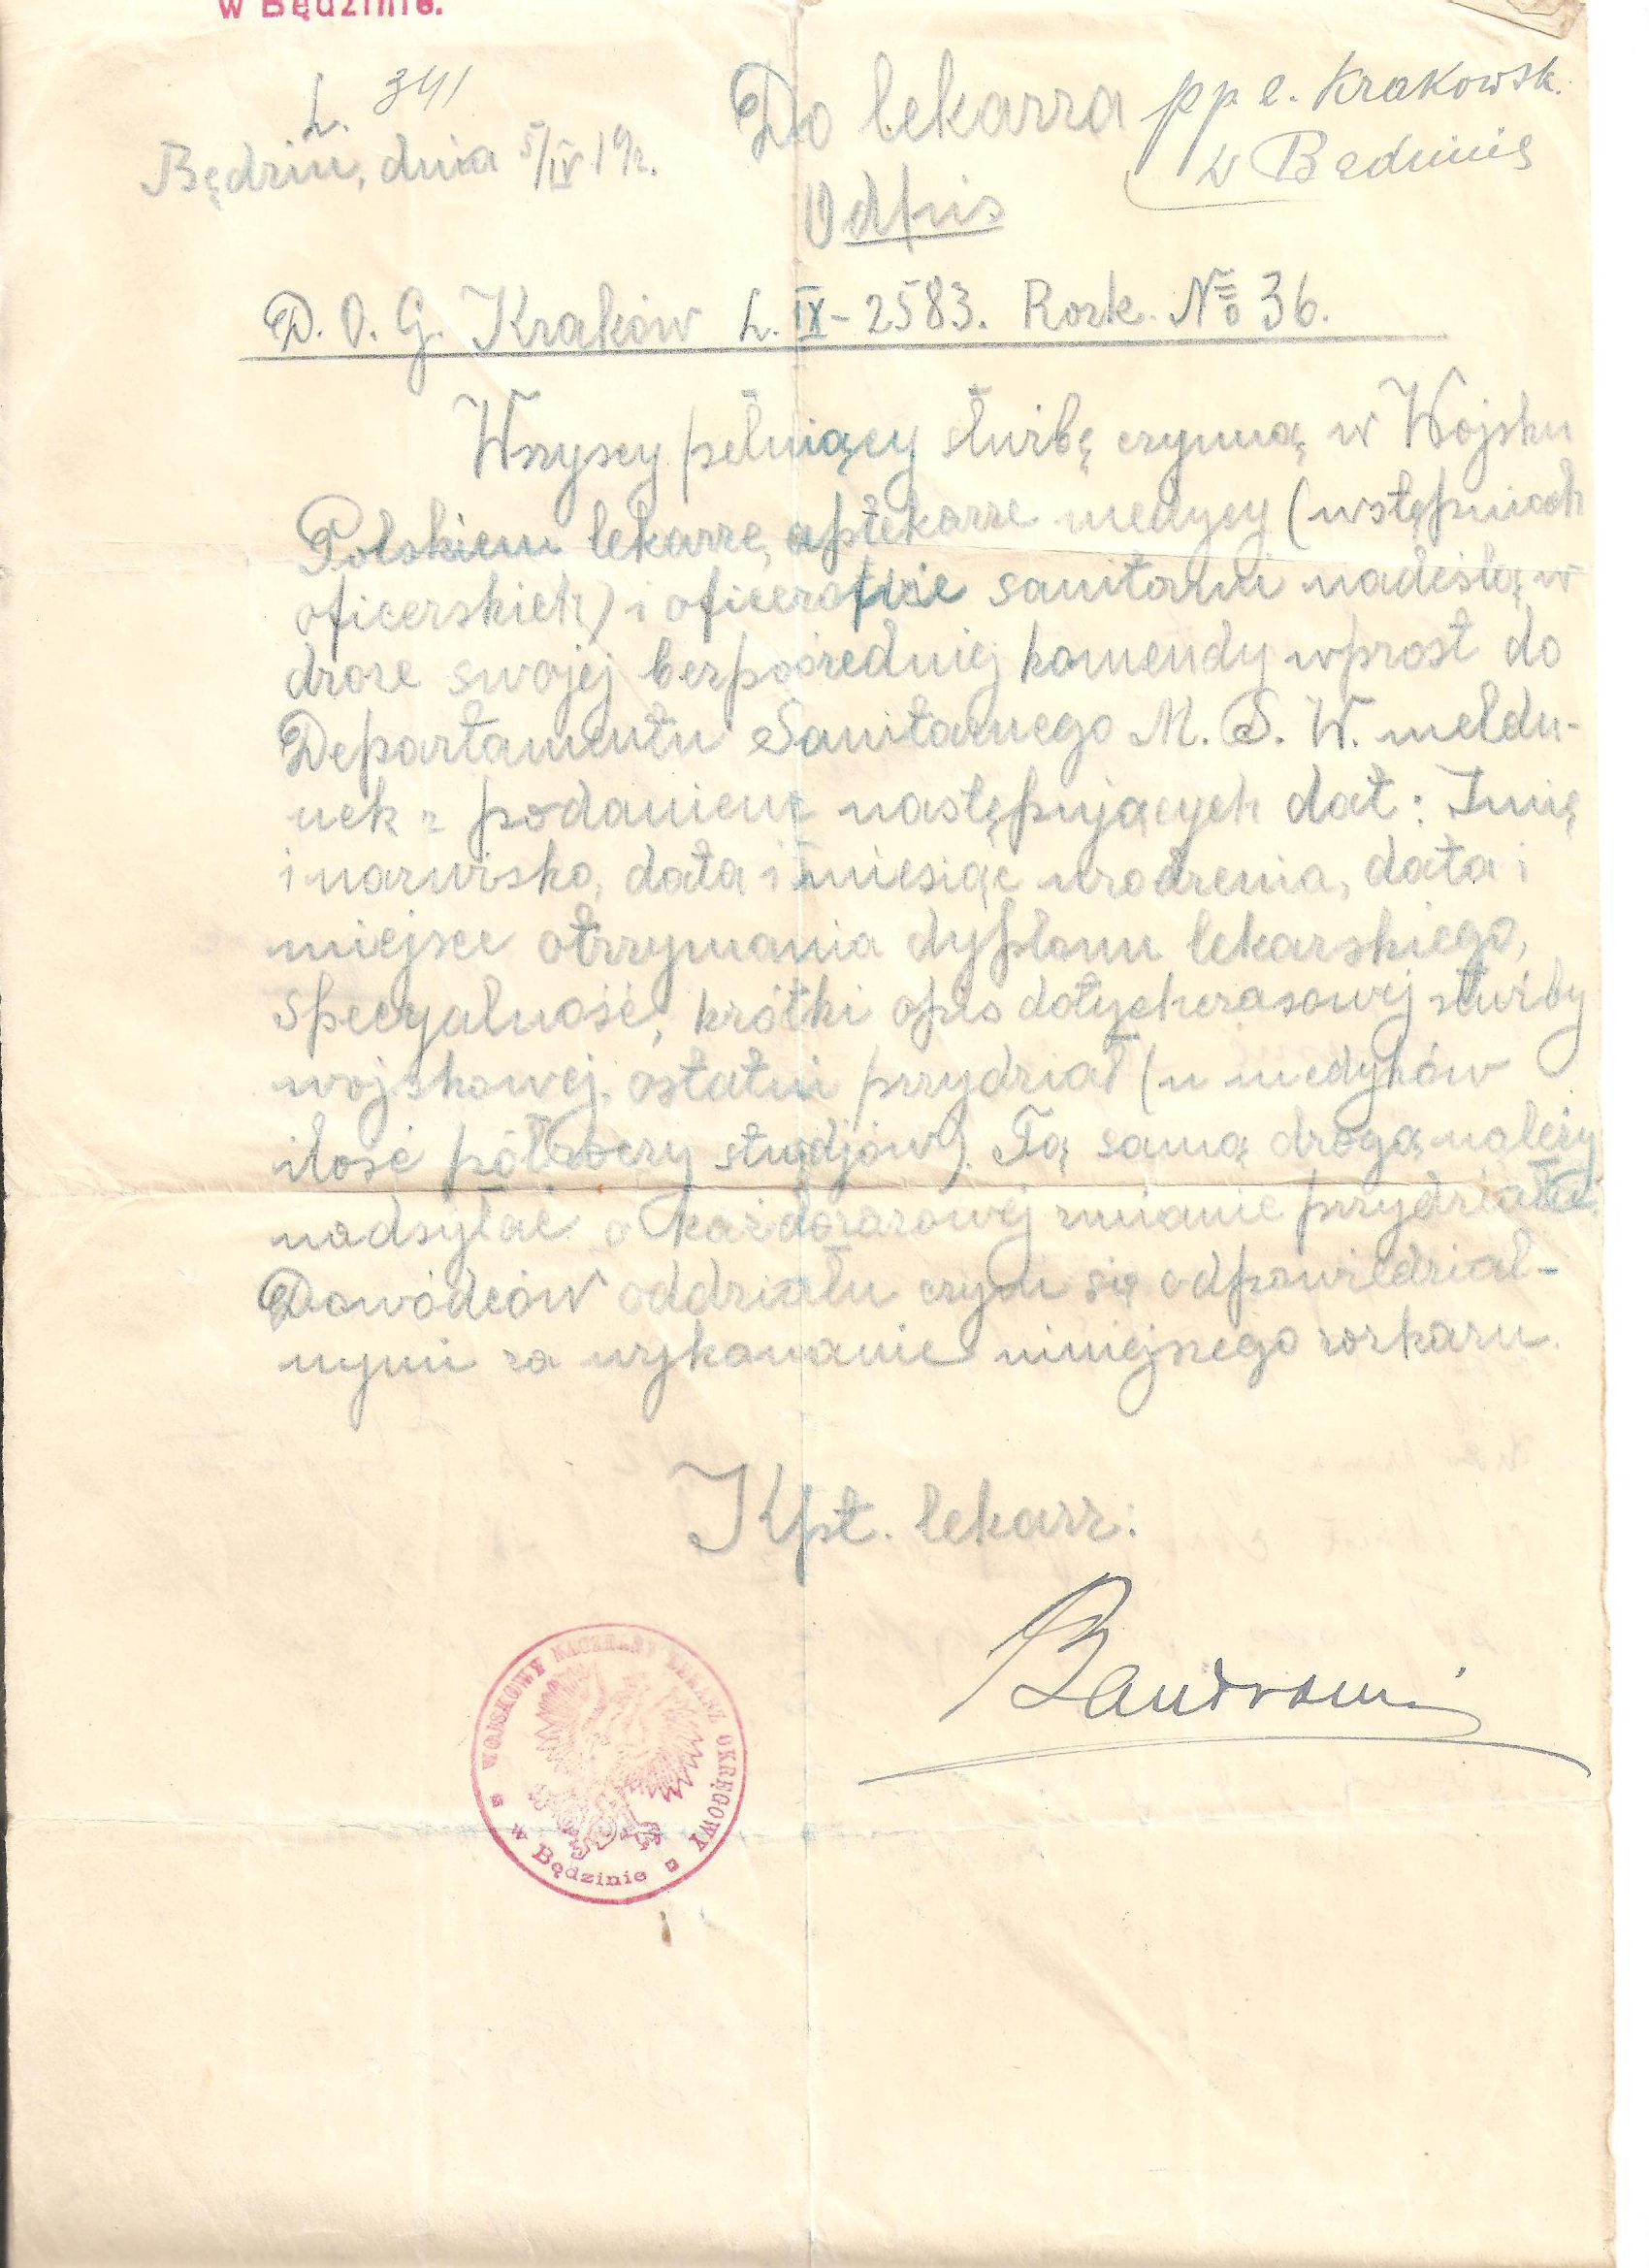 w Będzinie.
L. 341
Będzin, dnia 5/IV 19r.
Do lekarza pp z. Krakowsk.
w Będzinie
Odpis
D. O. G. Kraków L. IX-2583. Rozk. No 36.
Wszyscy pełniący służbę czynną w Wojsku
Polskiem lekarze, aptekarze medycy (w stopniach
oficerskich) i oficerowie sanitarni nadeślą w
drodze swojej bezpośredniej komendy wprost do
Departamentu Sanitarnego M. S. W. meldu-
nek z podaniem następujących dat: Imię
i nazwisko, data i miesiąc urodzenia, data i
miejsce otrzymania dyplomu lekarskiego,
specyalność, krótki opis dotychczasowej służby
wojskowej, ostatni przydział (u medyków
ilość półroczy studjów). Tą samą drogą należy
nadsyłać o każdorazowej zmianie przydziału.
Dowódców oddziału czyni się odpowiedzial-
nymi za wykonanie niniejszego rozkazu.
Kpt. lekarz:
WOJSKOWY NACZELNY LEKARZ OKRĘGOWY
w Będzinie